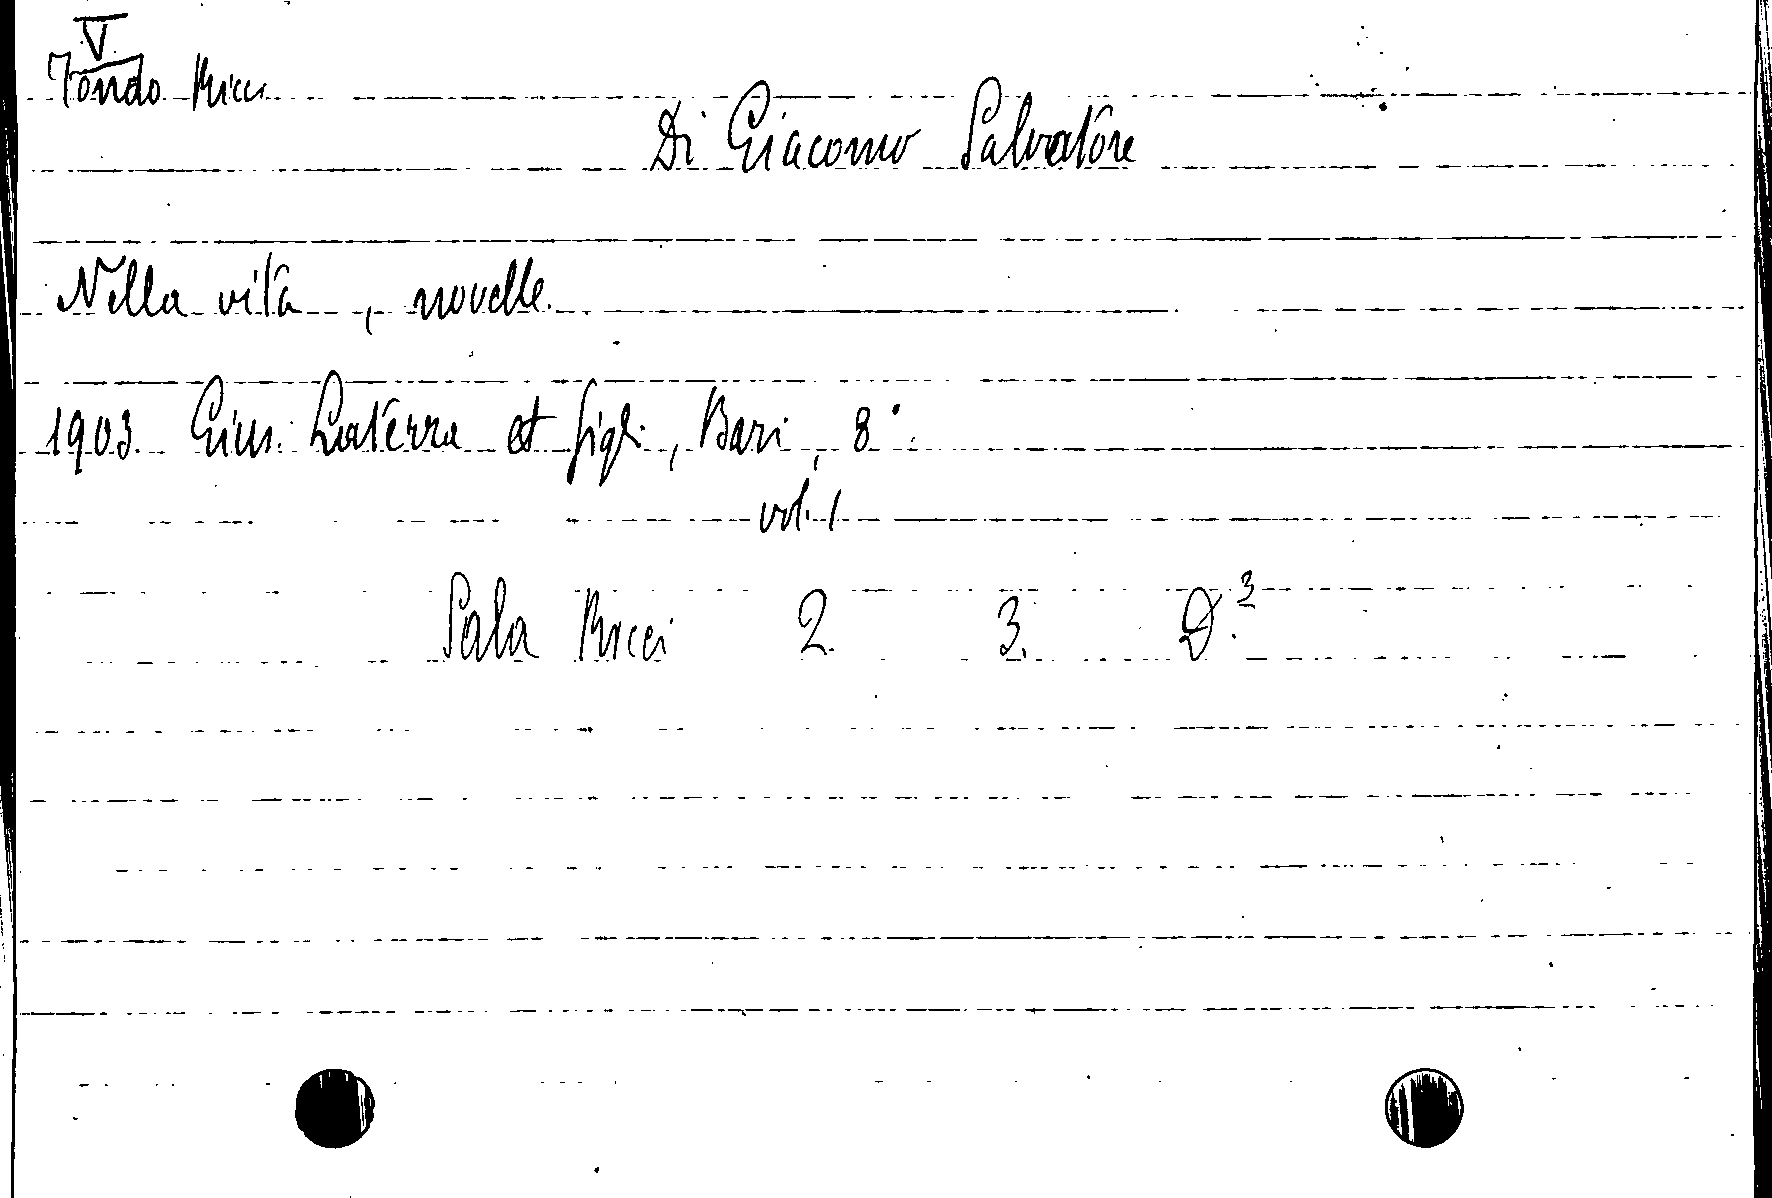 V
Fondo Ricci
Di Giacomo Salvatore
Nella vita, novelle.
1903. Gius. Laterza et figli, Bari, 8°.
vol. 1
Sala Ricci 2. 3. D.³